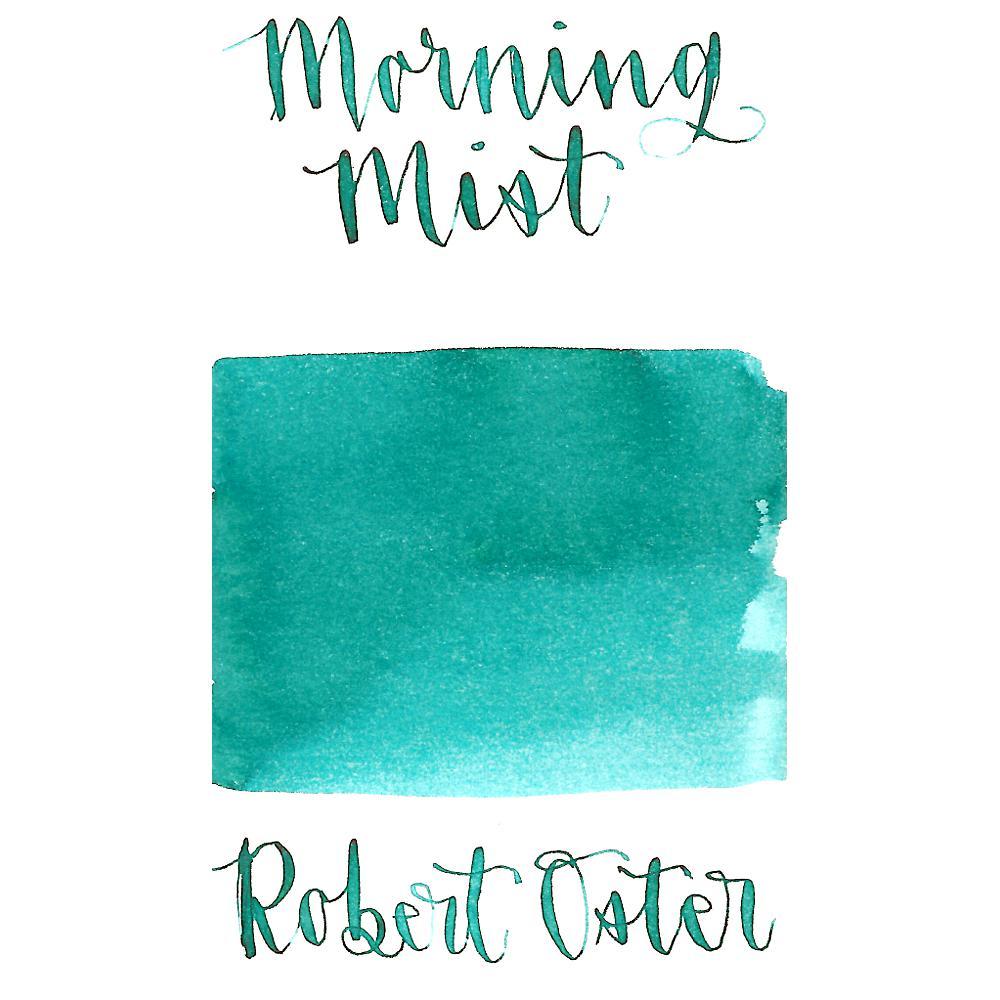 Morning
Mist
Robert Oster